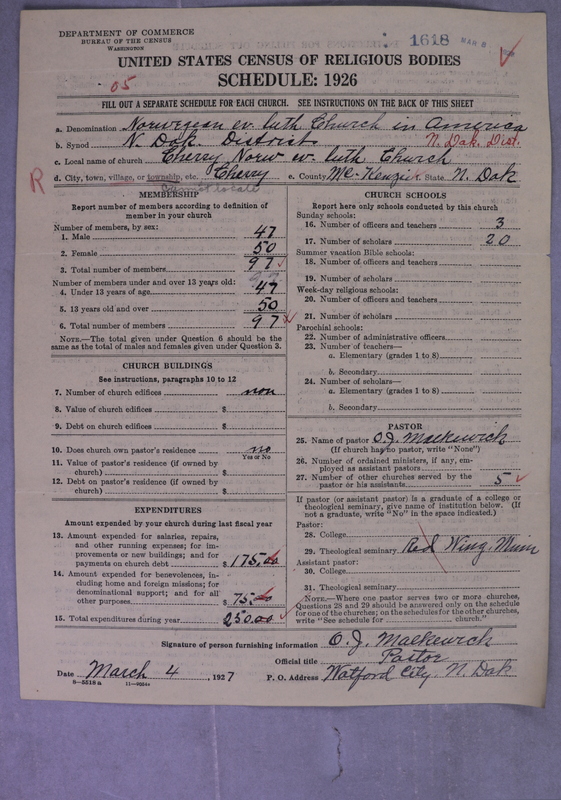 DEPARTMENT OF COMMERCE
BUREAU OF THE CENSUS
WASHINGTON
1618
MAR 8
UNITED STATES CENSUS OF RELIGIOUS BODIES
SCHEDULE: 1926
05
FILL OUT A SEPARATE SCHEDULE FOR EACH CHURCH. SEE INSTRUCTIONS ON THE BACK OF THIS SHEET
a. Denomination Norwegian ev. luth Church in America
b. Synod N. Dak. District N. Dak. Dist.
c. Local name of church Cherry Norw ev. luth Church
R d. City, town, village, or township, etc. Cherry e. County Mc Kenzie State N. Dak
Cannot locate
MEMBERSHIP
Report number of members according to definition of member in your church
Number of members, by sex:
1. Male 47
2. Female 50
3. Total number of members 97
Number of members under and over 13 years old:
4. Under 13 years of age 47
5. 13 years old and over 50
6. Total number of members 97
NOTE.—The total given under Question 6 should be the same as the total of males and females given under Question 3.
CHURCH BUILDINGS
See instructions, paragraphs 10 to 12
7. Number of church edifices non
8. Value of church edifices $
9. Debt on church edifices $
10. Does church own pastor's residence? no
Yes or No
11. Value of pastor's residence (if owned by church) $
12. Debt on pastor's residence (if owned by church) $
EXPENDITURES
Amount expended by your church during last fiscal year
13. Amount expended for salaries, repairs, and other running expenses; for improvements or new buildings; and for payments on church debt $ 175,00
14. Amount expended for benevolences, including home and foreign missions; for denominational support; and for all other purposes $ 75,00
15. Total expenditures during year 250.00
CHURCH SCHOOLS
Report here only schools conducted by this church
Sunday schools:
16. Number of officers and teachers 3
17. Number of scholars 20
Summer vacation Bible schools:
18. Number of officers and teachers
19. Number of scholars
Week-day religious schools:
20. Number of officers and teachers
21. Number of scholars
Parochial schools:
22. Number of administrative officers
23. Number of teachers—
a. Elementary (grades 1 to 8)
b. Secondary
24. Number of scholars—
a. Elementary (grades 1 to 8)
b. Secondary
PASTOR
25. Name of pastor O. J. Malkewick
(If church has no pastor, write "None")
26. Number of ordained ministers, if any, employed as assistant pastors
27. Number of other churches served by the pastor or his assistants 5
If pastor (or assistant pastor) is a graduate of a college or theological seminary, give name of institution below. (If not a graduate, write "No" in the space indicated.)
Pastor:
28. College
29. Theological seminary Red Wing, Minn
Assistant pastor:
30. College
31. Theological seminary
NOTE.—Where one pastor serves two or more churches, Questions 28 and 29 should be answered only on the schedule for one of the churches; on the schedules for the other churches, write "See schedule for church."
Signature of person furnishing information O. J. Malkewick
Official title Pastor
Date March 4, 1927 P. O. Address Watford City, N. Dak
8—5518a